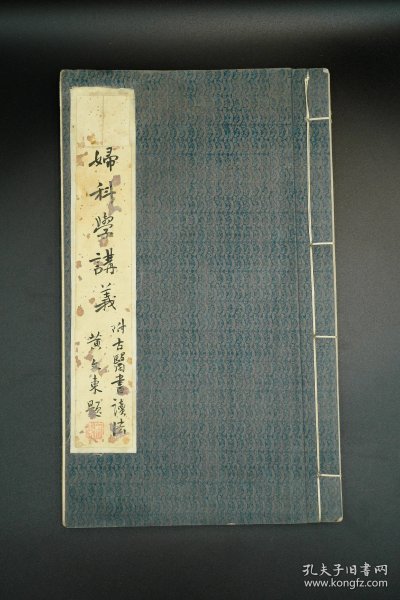 婦科學講義
附古醫書讀法
黃文東題
孔夫子旧书网
www.kongfz.com